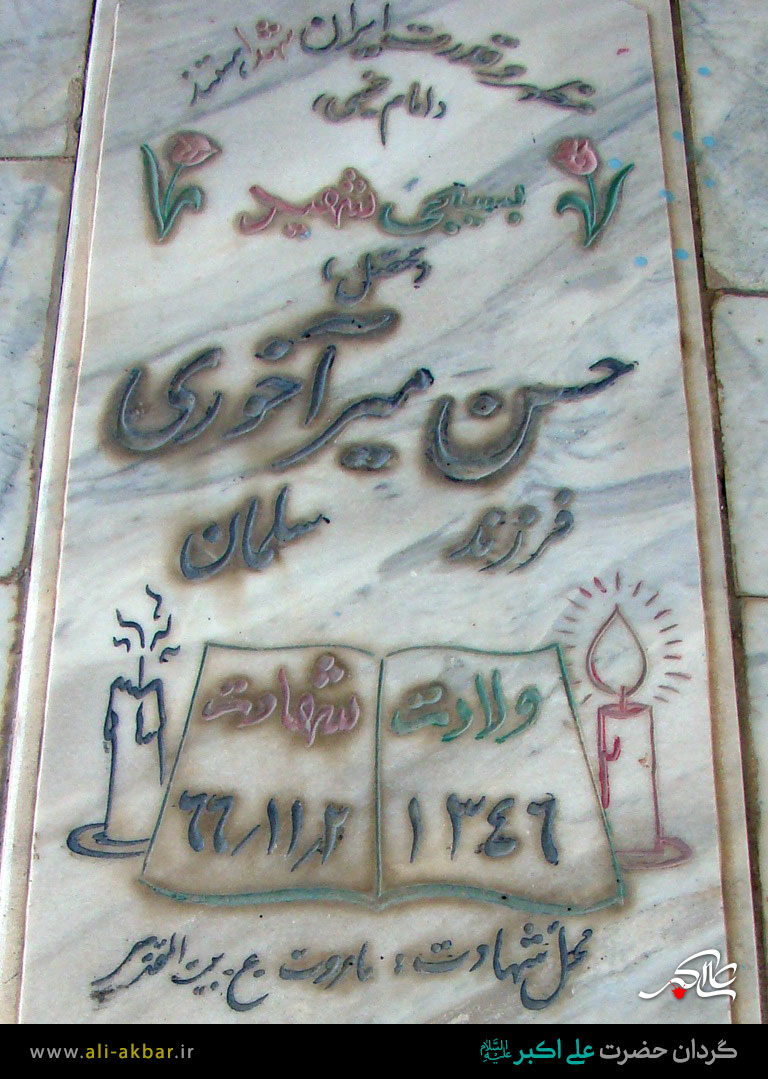 مظهر قدرت ایران شهدا هستند
(امام خمینی)
بسیجی شهید
حسن میرآخوری
فرزند سلمان
ولادت شهادت
۱۳۴۶ ۶۶/۱۱/۲
محل شهادت: ماووت ع-بیت المقدس
علی اکبر
www.ali-akbar.ir
گردان حضرت علی اکبر علیه السلام